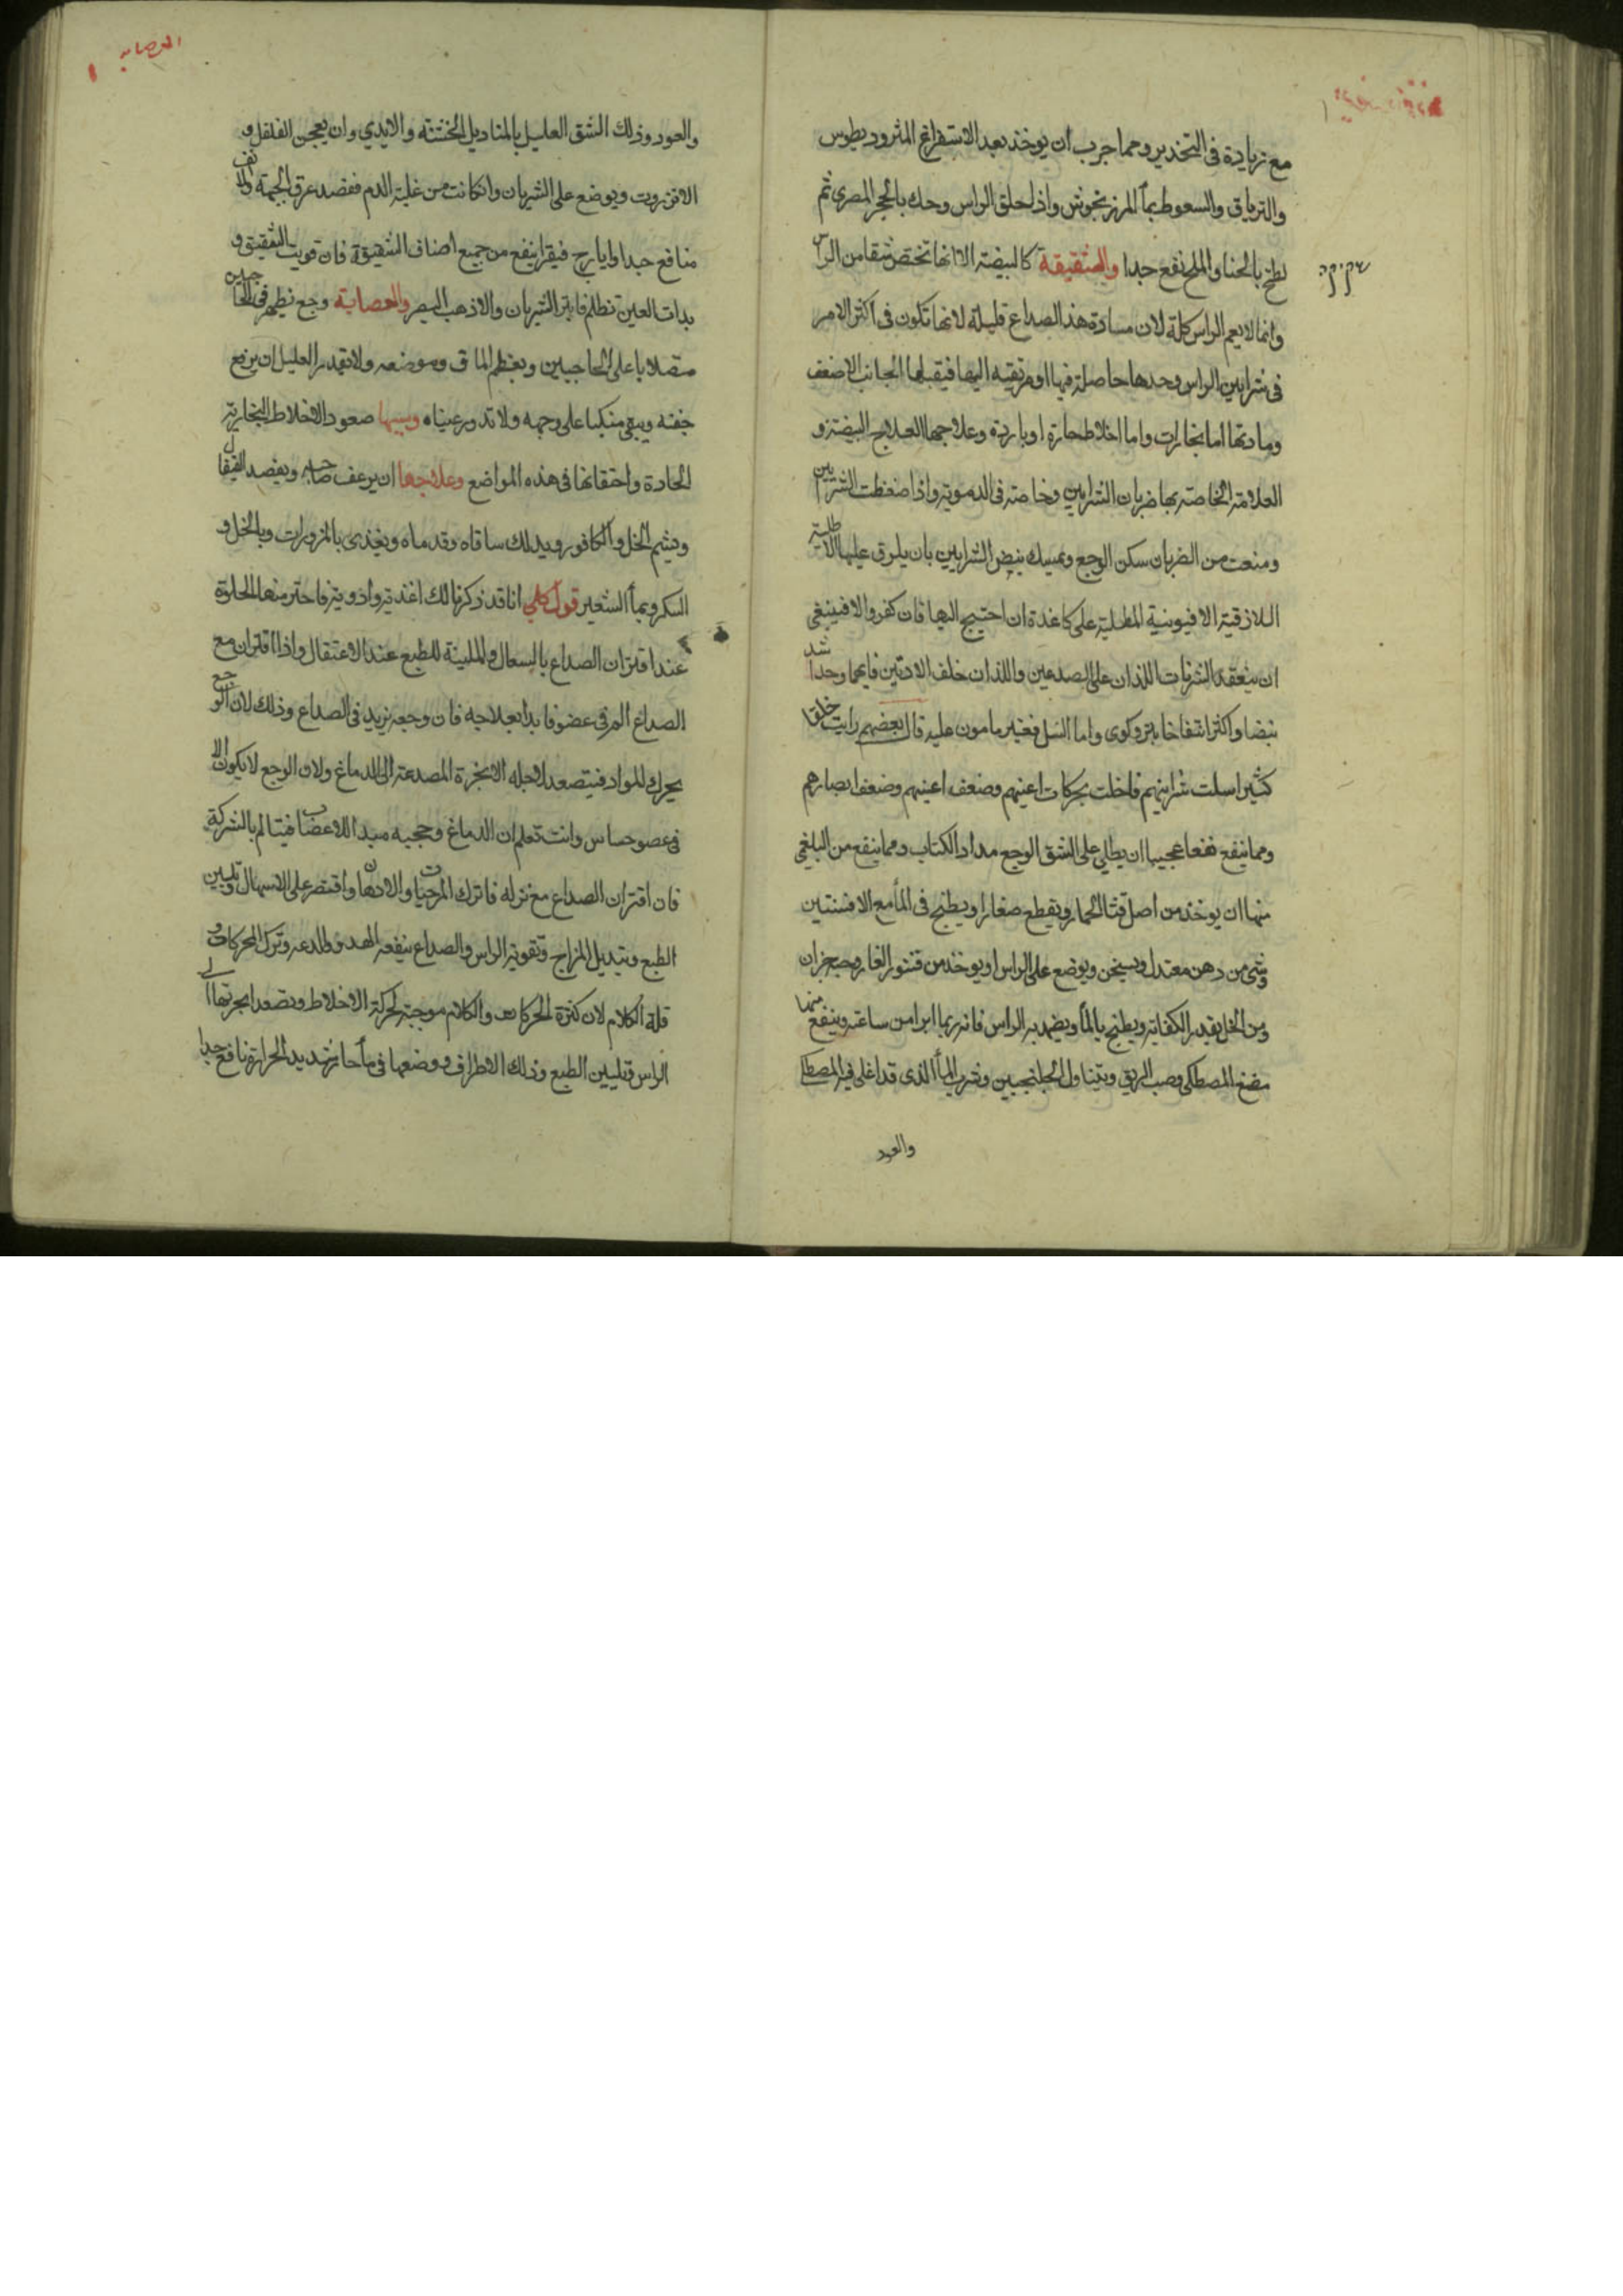 مع زيادة فى التخدير ومما جرب ان يوخذ بعد الاستفراغ المثروديطوس
والترياق والسعوط بمآ المرزنجوش واذا حلق الراس وحك بالحجر المصرى ثم
لطخ بالحنا والملح نفع جدا والشقيقة كالبيضه الا انها تختص بشقا من الراس
وانما لا يعم الراس كلة لان مسادة هذا الصداع قليلة لانها تكون فى اكثر الامر
فى شرايين الراس وحدها حاصلة فيها او مرتقيه اليها فيقبلها الجانب الاضعف
ومادتها اما بخارات واما اخلاط حارة او باردة وعلاجها العلاج البيضة و
العلامة الخاصة بها ضربان الشرايين وخاصة فى الدموية واذا ضغطت الشرايين
ومنعت من الضربان سكن الوجع ويمسك نبض الشرايين بان يلزق عليها الاطلية
اللازقية الافيونية المطلية على كاغدة ان احتيج اليها فان كفى والا فينبغى
ان يتفقد الشريانات اللذان على الصدعين واللذان خلف الاذنين فايهما وجد اشد
نبضا واكثر انتفاخا بتر وكوى واما السل فغير مامون عليه قال بعضهم رايت خلقا
كثيرا سلت شرايينهم فاختلت بحركات اعينهم وضعف اعينهم وضعف ابصارهم
ومما ينفع نفعا عجيبا ان يطلى على الشق الوجع مداد الكتاب ومما ينفع من البلغمى
منها ان يوخذ من اصل قثا الحمار ويقطع صغارا ويطبخ فى المآ مع الافسنتين
وشى من دهن معتدل ويسخن ويوضع على الراس او يوخذ من قشور الغار وحب
ومن الخل بقدر الكفاية ويطبخ بالمآ ويضمد به الراس فانه ربما ابرا من ساعته وينفع منها
مضغ المصطكى وصب الريق ويتناول الجلنجبين وشرب المآ الذى قد اغلى فيه المصطكا
والعود
العصابه
والعود وذلك الشق العليل بالمناديل الخشنة والايدي وان يعجن الفلفل و
الانزروت ويوضع على الشريان وان كانت من غلبة الدم ففصد عرق الجبهة والانف
منافع جدا وايارج فيقرا ينفع من جميع اصناف الشقيقة فان قويت الشقيقة و
بدات العين تظلم فابتر الشريان والا ذهب البصر والعصابة وجع يظهر فى الجبين
متصلا باعلى الحاجبين ويعظم الماق وموضعه ولا يقدر العليل ان يرفع
جفنه ويبقى منكبا على وجهه ولا تدور عيناه وسببها صعود الاخلاط البخارية
الحادة واحتقانها فى هذه المواضع وعلاجها ان يرعف صاحبه ويفصد القيفال
ويشم الخل والكافور ويدلك ساقاه وقدماه ويغذى بالمزورات وبالخل و
السكر وبمآ الشعير قول كلي انا قد ذكرنا لك اغذية وادوية فاحترمنها الحلوة
عند اقتران الصداع بالسعال والملينة للطبع عند الاعتقال واذا اقترن مع
الصداع الم فى عضو فابدا بعلاجه فان وجعه يزيد فى الصداع وذلك لان الوجع
يحرك المواد فيتصعد لاجله الابخرة المصدعة الى الدماغ ولان الوجع لا يكون الا
فى عضو حساس وانت تعلم ان الدماغ وحجبه مبدا الاعصاب فيتالم بالشركة
فان اقتران الصداع مع نزله فاترك المرخيات والادهان واقتصر على الاسهال وتليين
الطبع وتبديل المزاج وتقوية الراس والصداع ينفعه الهدو والدعه وترك الحركات و
قلة الكلام لان كثرة الحركات والكلام موجبة لحركة الاخلاط وتصعد ابخرتها الى
الراس وتليين الطبع وذلك الاطراف ووضعها فى مآ حار شديد الحرارة نافع جدا